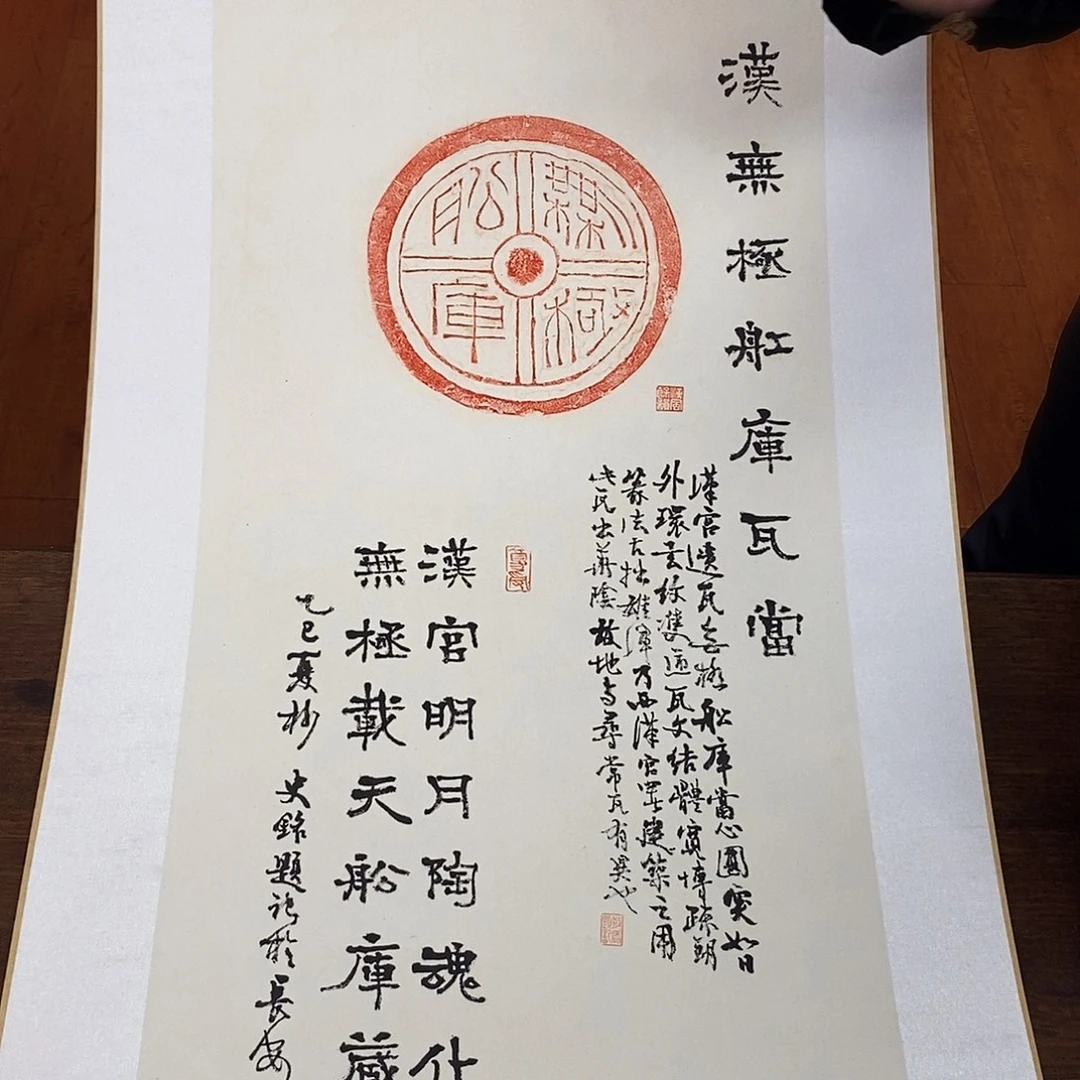 漢無極舡庫瓦當
無極舩庫
漢宮遺瓦無極舩庫當心圓突如日
外環雲紋雙瓦文結體寬博疏朗
篆法古拙雄渾乃西漢宮室建築之用
此瓦出華陰故地与尋常瓦有異也
漢宮明月陶魂化
無極載天舩庫藏
乙巳夏杪 史題記於長安